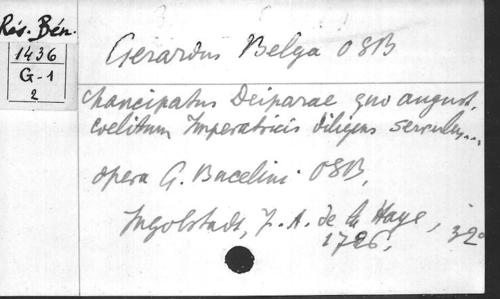 Rés. Bén.
1436
G-1
2
Gerardus Belga OSB
Mancipatus Deiparae quo august.
coelitum Imperatricis diligens servulus...
opera G. Bucelini OSB,
Ingolstadt, J. A. de la Haye,
1726, 32°